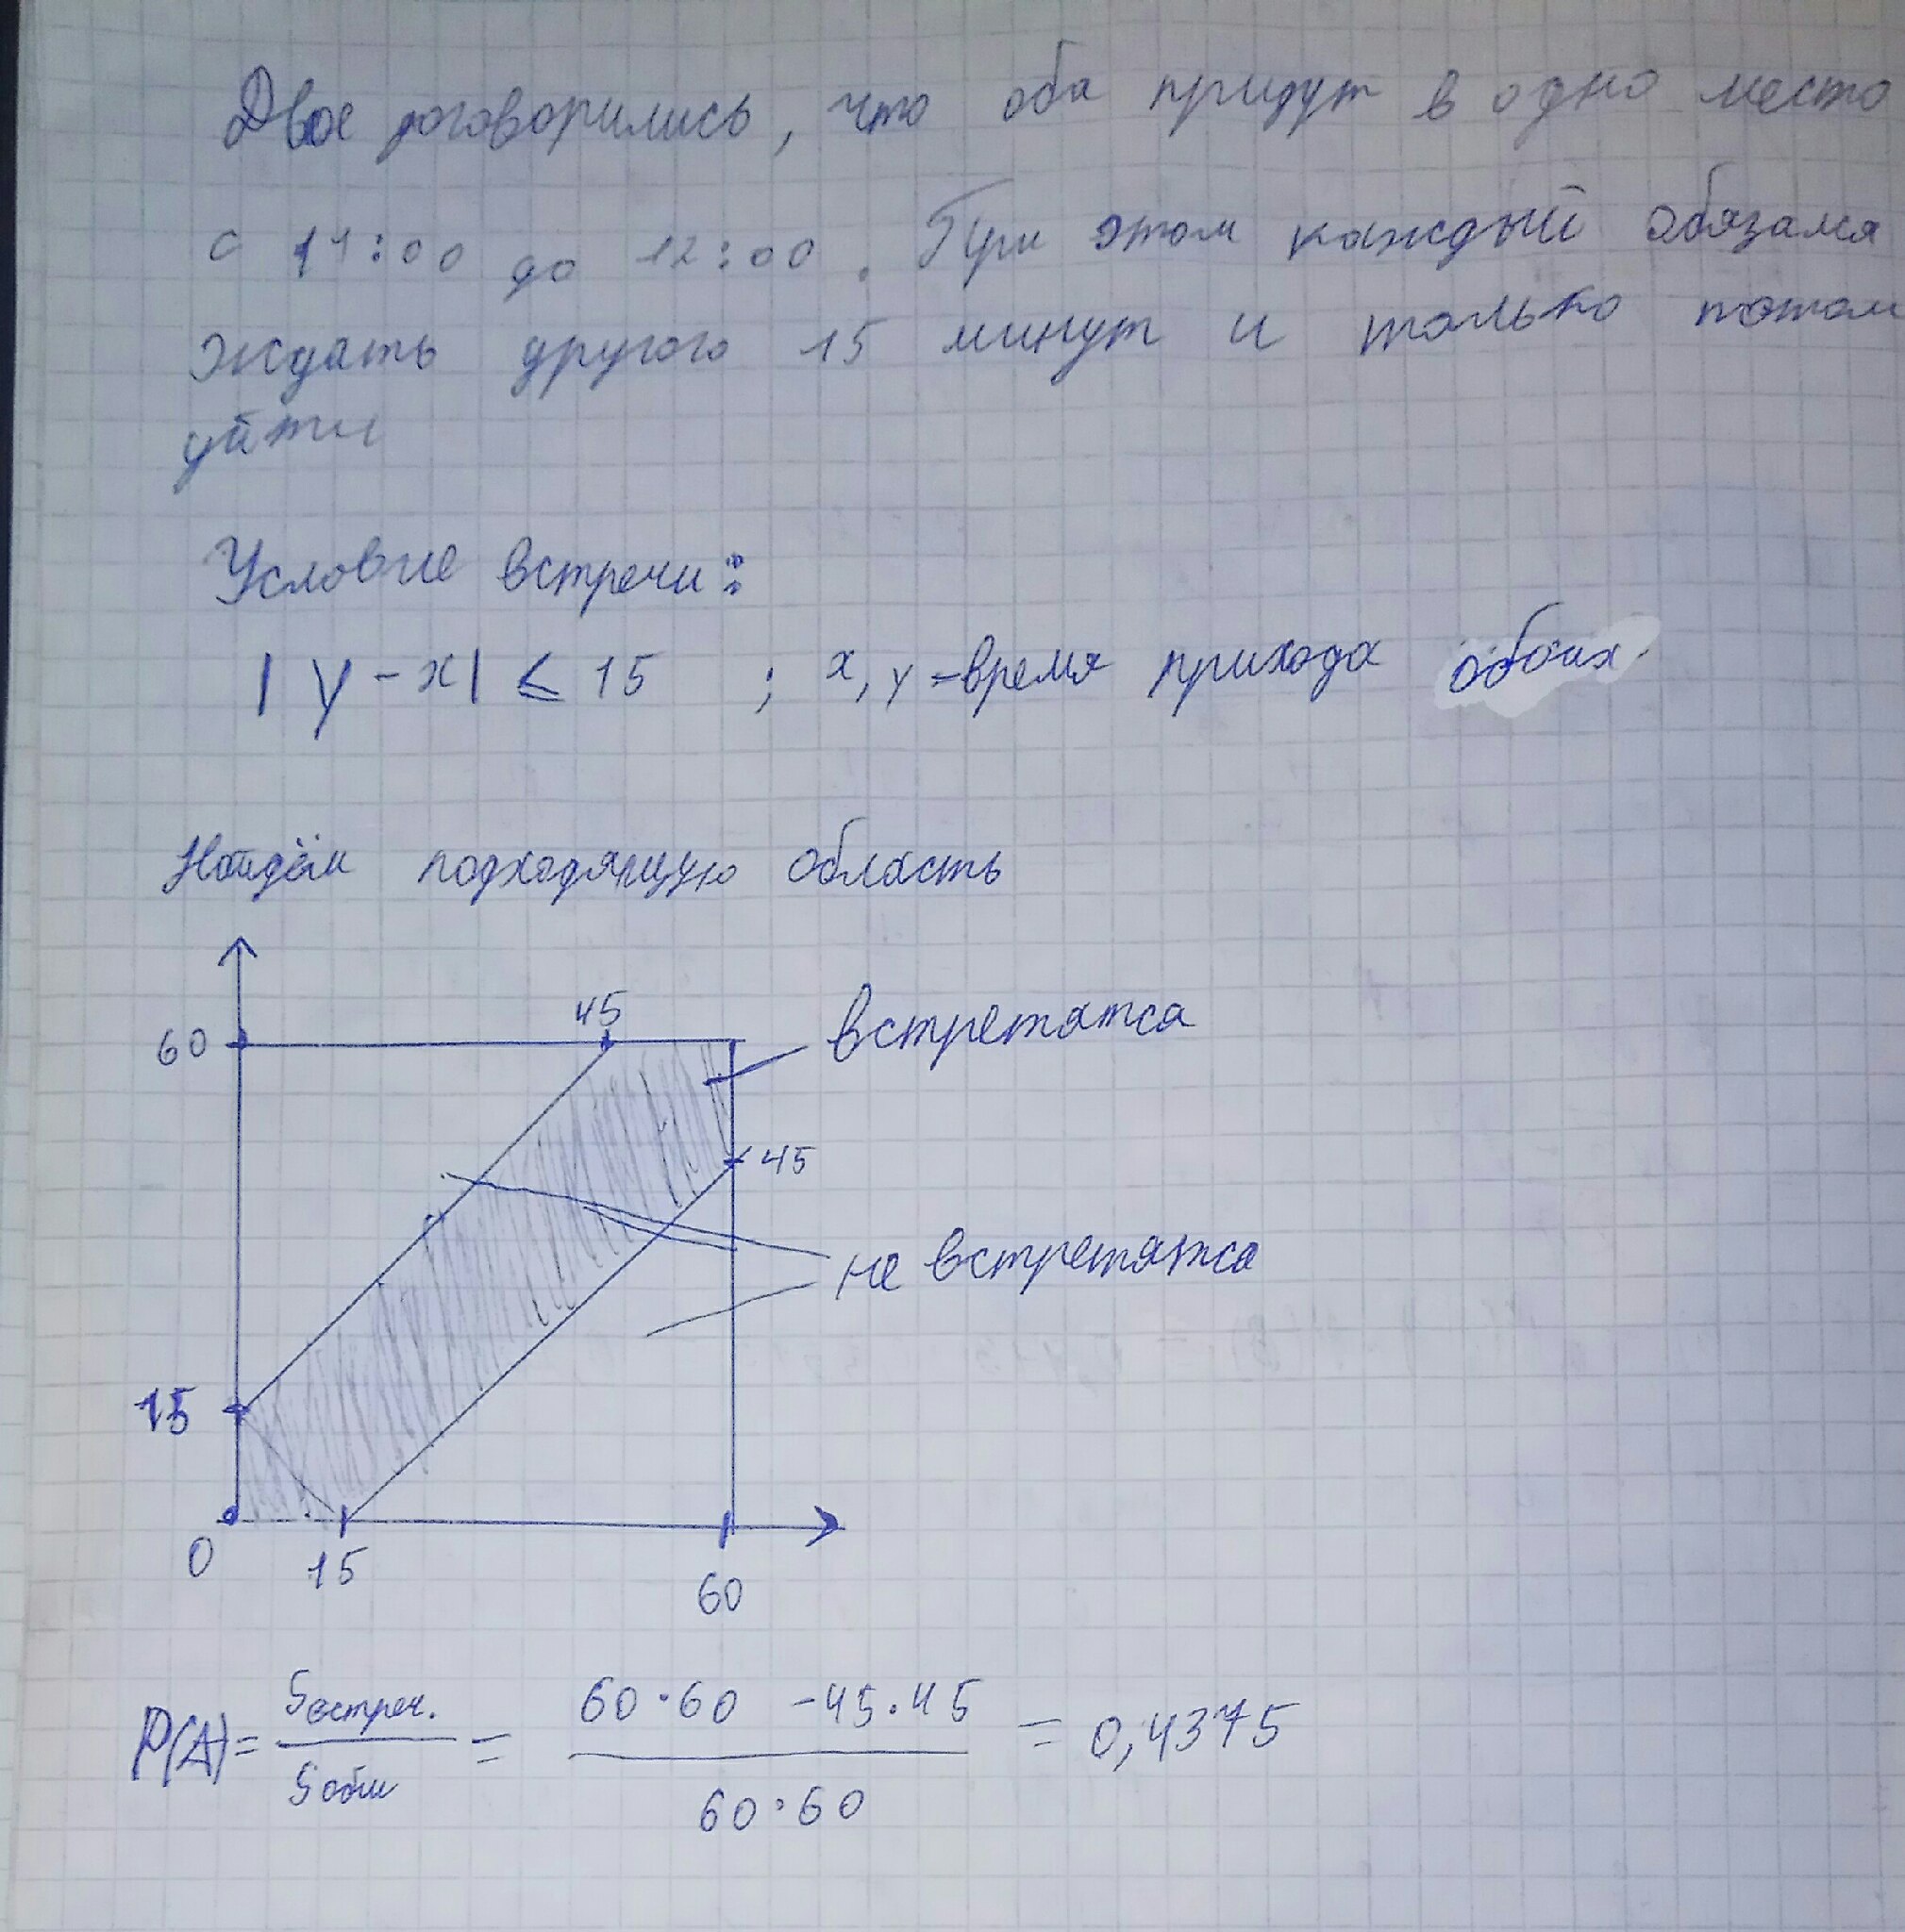 Двое договорились, что оба придут в одно место
с 11:00 до 12:00. При этом каждый обязался
ждать другого 15 минут и только потом
уйти
Условие встречи:
|y - x| ≤ 15 ; x, y - время прихода обоих.
Найдём подходящую область
60
45
встретятся
45
не встретятся
15
0
15
60
P(A) = Sвстреч. / Sобщ = (60·60 - 45·45) / (60·60) = 0,4375